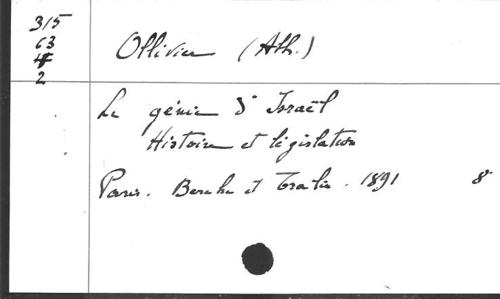 315
63
2
Ollivier (Ath.)
Le génie d'Israël
Histoire et législation
Paris. Berche et Tralin. 1891 8°